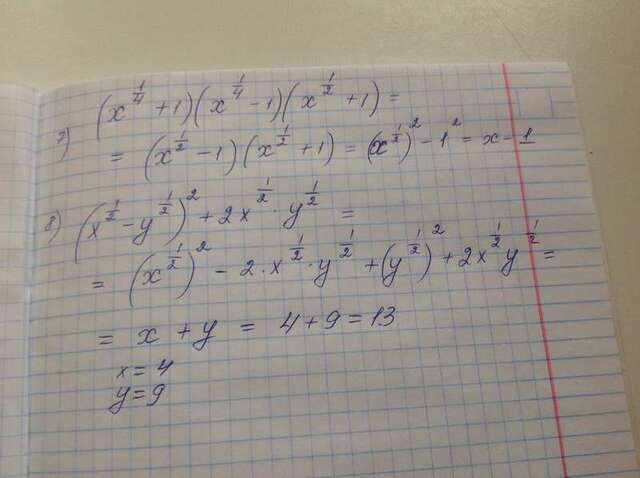 7) (x^{1/4} + 1)(x^{1/4} - 1)(x^{1/2} + 1) =
= (x^{1/2} - 1)(x^{1/2} + 1) = (x^{1/2})^2 - 1^2 = x - 1
8) (x^{1/2} - y^{1/2})^2 + 2x^{1/2} · y^{1/2} =
= (x^{1/2})^2 - 2 · x^{1/2} · y^{1/2} + (y^{1/2})^2 + 2x^{1/2} y^{1/2} =
= x + y = 4 + 9 = 13
x = 4
y = 9